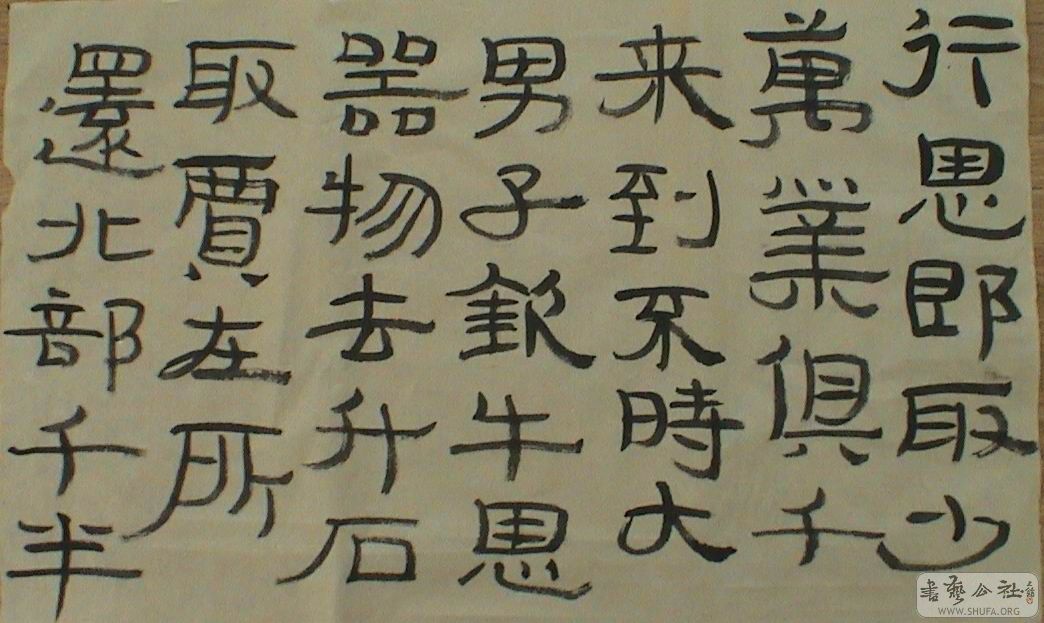 行思即取少
萬業俱千
来到不時大
男子欽牛思
器物去升石
取賈在所
還北部千半
書藝公社
WWW.SHUFA.ORG